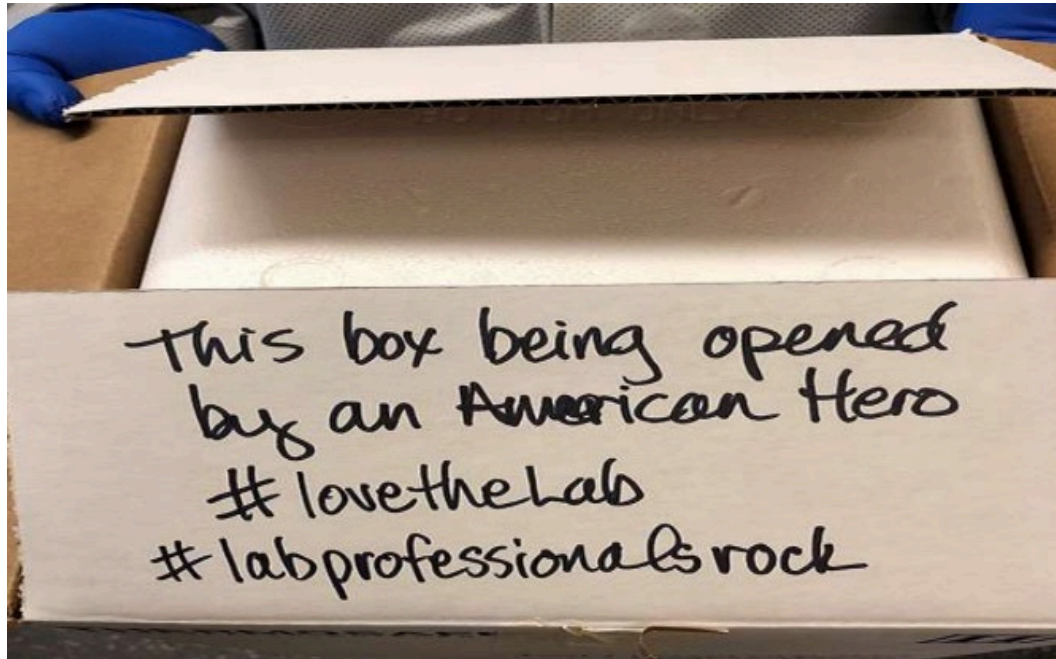 BOTTOM ONLY
This box being opened
by an American Hero
#lovetheLab
#labprofessionalsrock